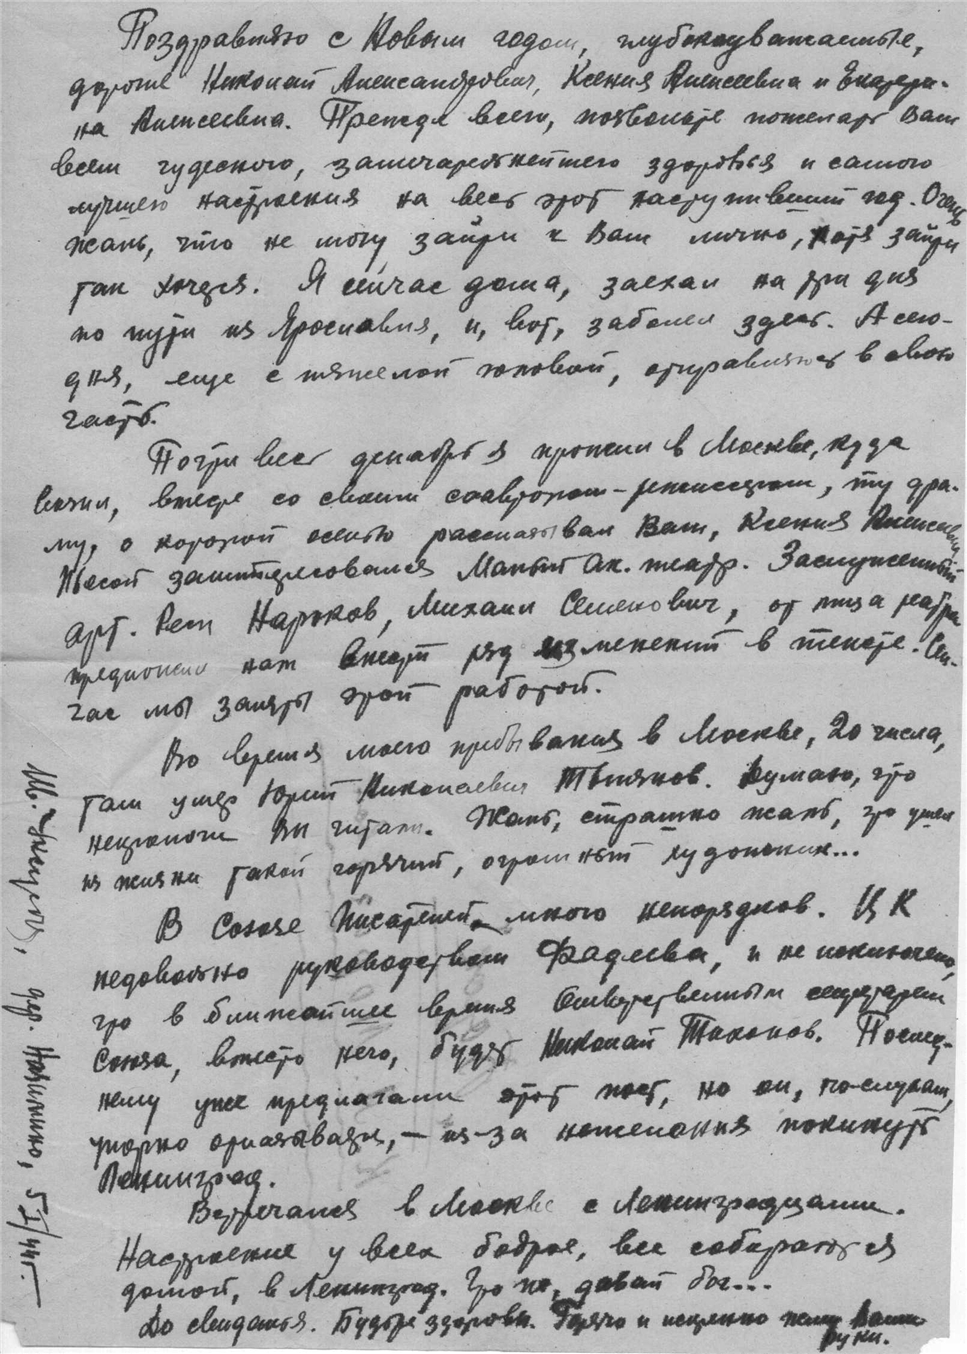 Поздравляю с Новым годом, глубокоуважаемые,
дорогие Николай Александрович, Ксения Алексеевна и Екатери-
на Алексеевна. Прежде всего, позвольте пожелать Вам
всем чудесного, замечательнейшего здоровья и самого
лучшего настроения на весь этот наступивший год. Очень
жаль, что не могу зайти к Вам лично, хотя зайти
так хочется. Я сейчас дома, заехал на три дня
по пути из Ярославля, и, вот, заболел здесь. А сего-
дня, еще с тяжелой головой, отправляюсь в свою
часть.
Почти весь декабрь я прожил в Москве, куда
возил, вместе со своим соавтором-режиссером, ту дра-
му, о которой осенью рассказывал Вам, Ксения Алексеевна
Пьесой заинтересовался Малый Ак. театр. Заслуженный
арт. Респ Нароков, Михаил Семенович, от лица театра
предложил нам внести ряд изменений в тексте. Сей-
час мы заняты этой работой.
Во время моего пребывания в Москве, 20 числа,
там умер Юрий Николаевич Тынянов. Думаю, что
некрологи Вы читали. Жаль, страшно жаль, что ушел
из жизни такой горячий, огромный художник...
В Союзе Писателей много непорядков. ЦК
недовольно руководством Фадеева, и не исключено,
что в ближайшее время Ответственным секретарем
Союза, вместо него, будет Николай Тихонов. Послед-
нему уже предлагали этот пост, но он, по-слухам,
упорно отказывался, – из-за нежелания покинуть
Ленинград.
Встречался в Москве с Ленинградцами.
Настроение у всех бодрое, все собираются
домой, в Ленинград. Что ж, давай бог...
До свиданья. Будьте здоровы. Горячо и искренно жму Ваши
руки.
гор. 5/I/44г.